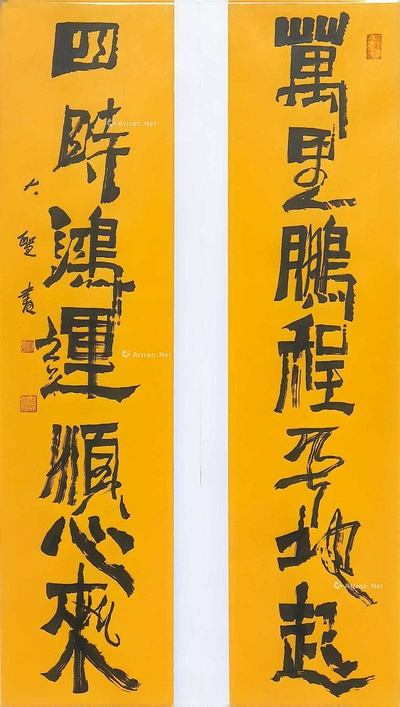 萬里鵬程平地起
四時鴻運順心來
大聖書
Artron.Net
Artron.Net
Artron.Net